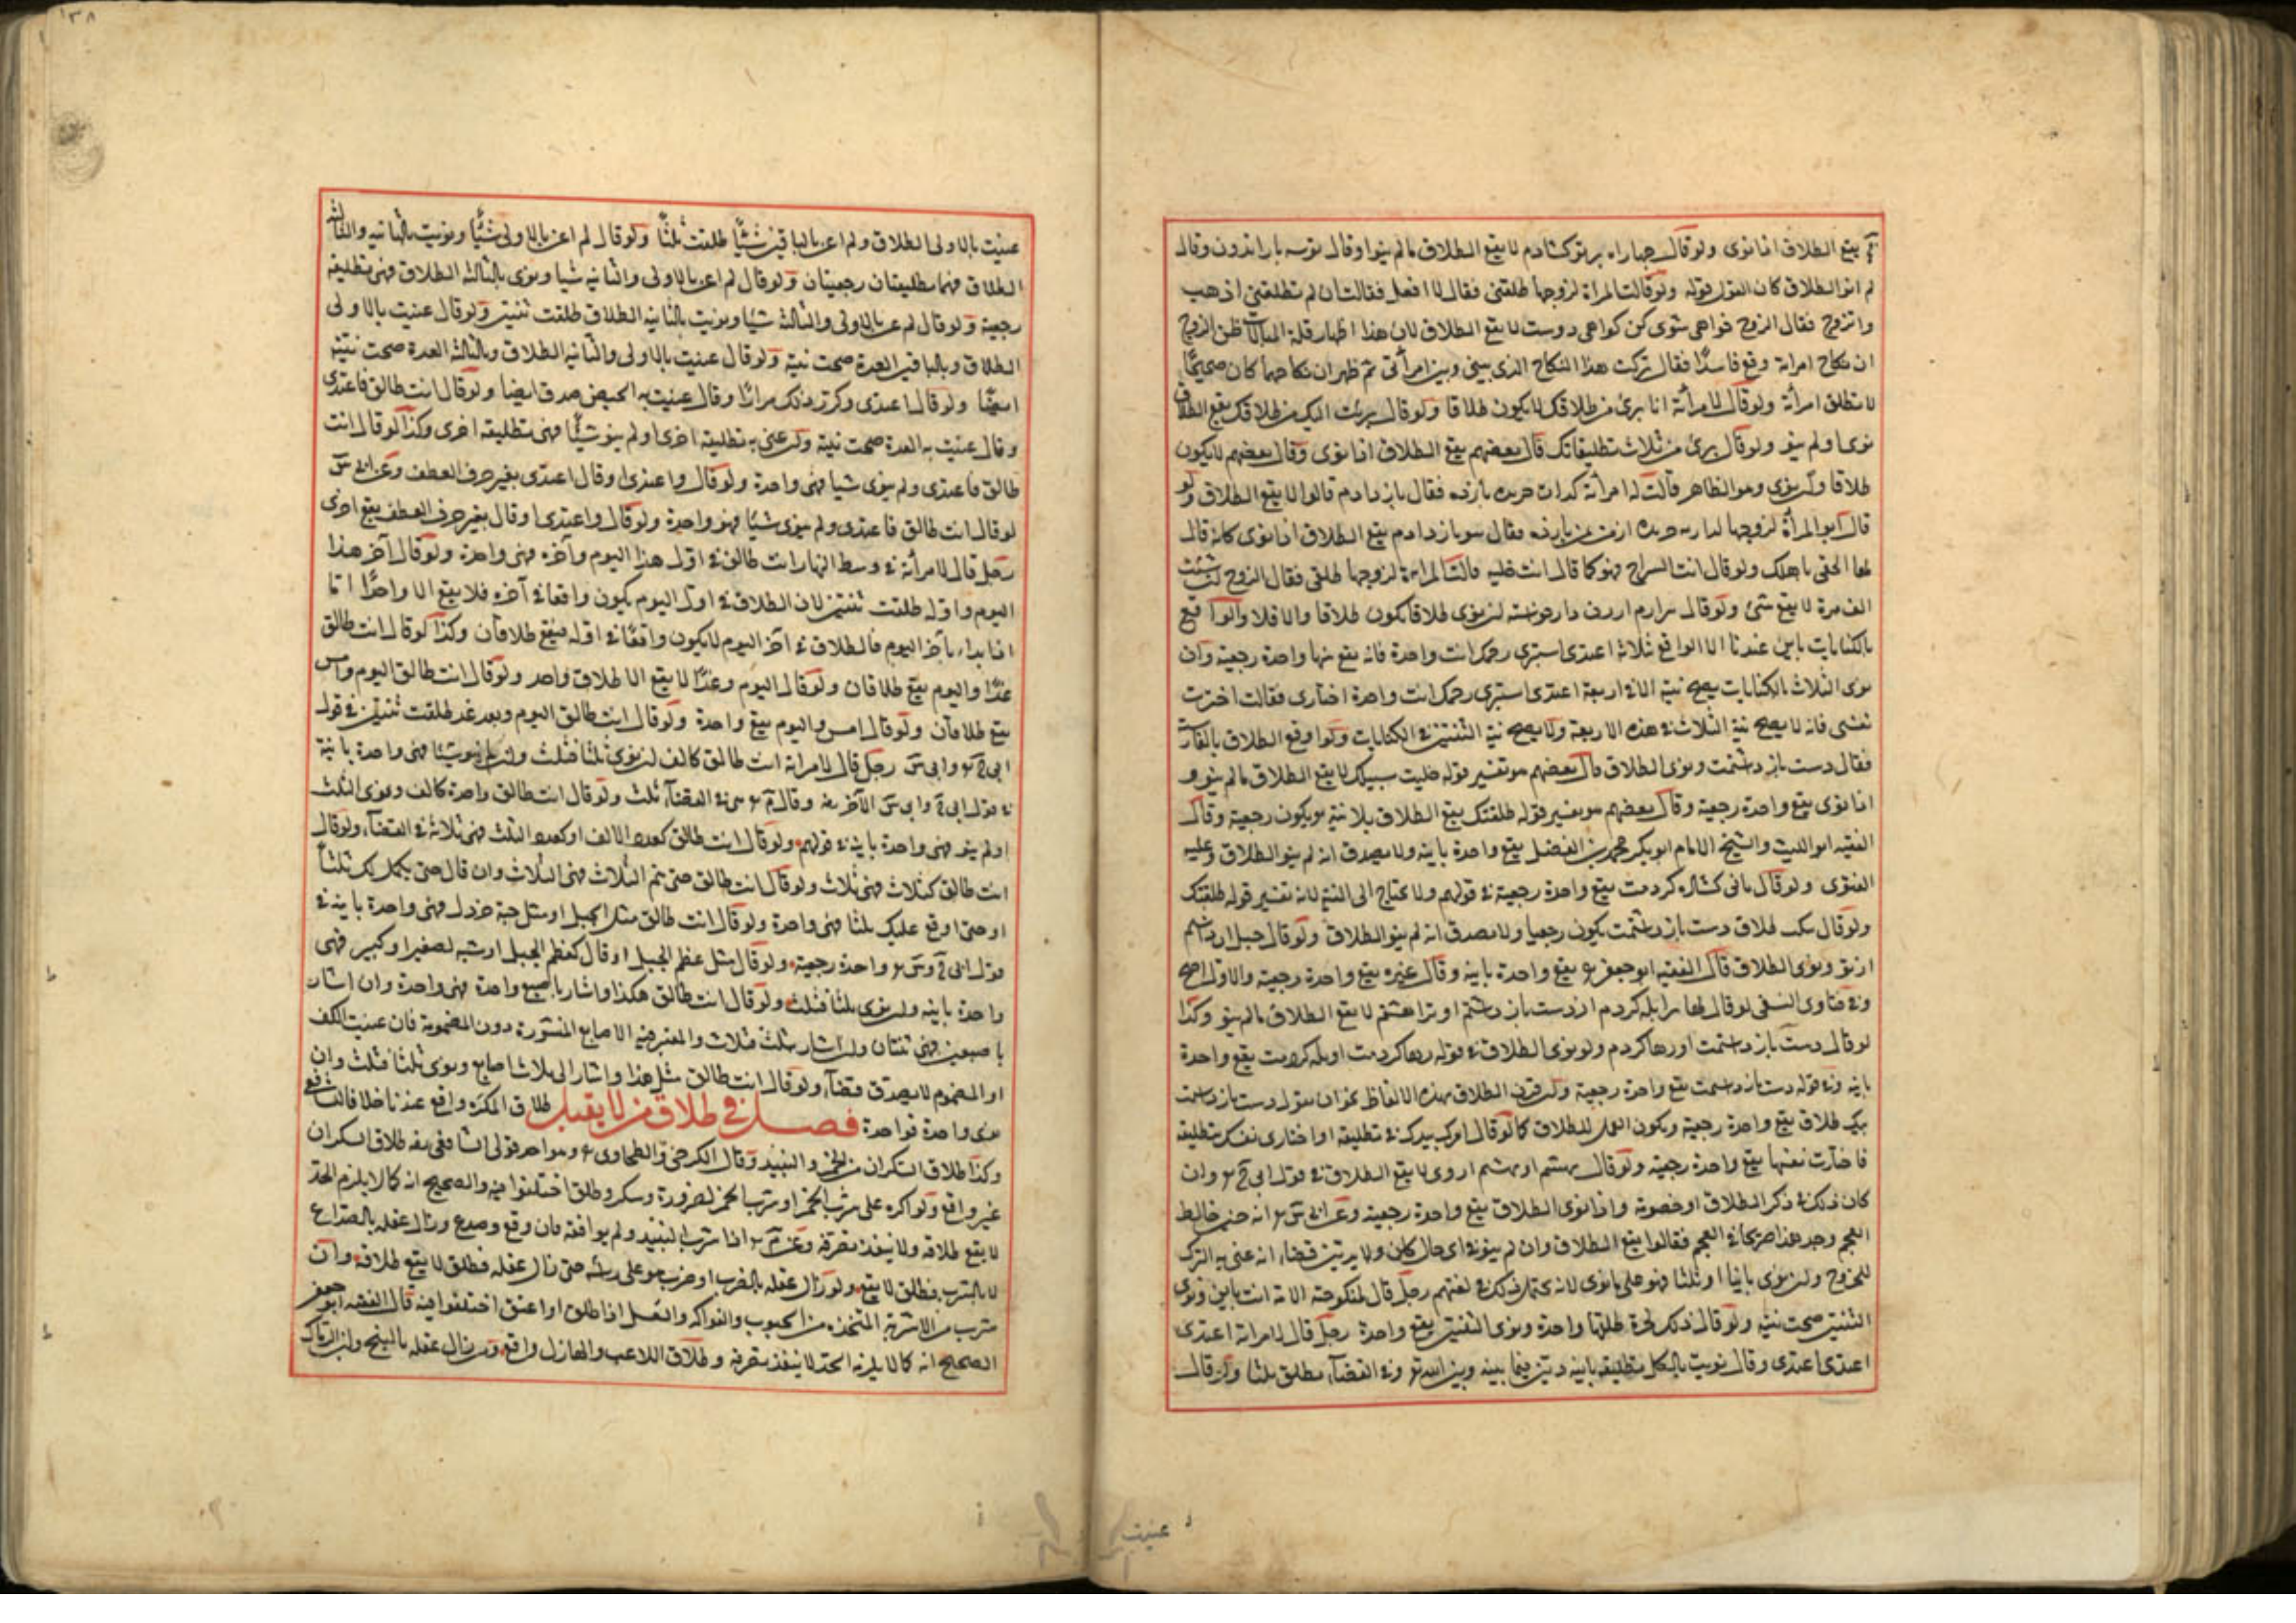 يقع الطلاق اذا نوى ولو قال جهار راه بر تو كشادم لا يقع الطلاق مالم ينو او قال توسه بار اندرون وقال
لم انو الطلاق كان القول قوله ولو قالت المراة لزوجها طلقنى فقال لا افعل فقالت ان لم تطلقنى اذهب
واتزوج فقال الزوج خواهى شوى كن خواهى دوست لا يقع الطلاق لان هذا اظهار قلة المبالات ظن الزوج
ان نكاح امراته وقع فاسدا فقال تركت هذا النكاح الذى بينى وبين امرأتى ثم ظهر ان نكاحها كان صحيحا
لا تطلق امرأته ولو قال لامرأته انا برئ من طلاقك لا يكون طلاقا ولو قال برئت اليك من طلاقك يقع الطلاق
نوى او لم ينو ولو قال برئ من ثلاث تطليقاتك قال بعضهم يقع الطلاق اذا نوى وقال بعضهم لا يكون
طلاقا وان نوى وهو الظاهر قالت له امرأته فقال باز دادم قالوا لا يقع الطلاق ولو
قال ابو المرأة لزوجها فقال باز دادم يقع الطلاق اذا نوى كانه قال
لها الحقى باهلك ولو قال انت السراح فهو كما قال انت خلية قالت امراة لزوجها طلقنى فقال الزوج لست
الف مرة لا يقع شئ ولو قال ان نوى طلاقا يكون طلاقا والا فلا والواقع
بالكنايات باين عندنا الا الواقع ثلاثة اعتدى استبرى رحمك انت واحدة فانه يقع بها واحدة رجعية وان
نوى الثلاث بالكنايات يصح نيته الا في اربعة اعتدى استبرى رحمك انت واحدة اختارى فقالت اخترت
نفسى فانه لا يصح نية الثلاث في هذه الاربعة ولا يصح نية الثنتين في الكنايات ولو اوقع الطلاق بالفارسية
فقال دست باز داشتمت ونوى الطلاق قال بعضهم هو تفسير قوله خليت سبيلك لا يقع الطلاق مالم ينو و
اذا نوى يقع واحدة رجعية وقال بعضهم هو تفسير قوله طلقتك يقع الطلاق بلا نية ويكون رجعية وقال
الفقيه ابو الليث والشيخ الامام ابو بكر محمد بن الفضل يقع واحدة باينه ولا يصدق انه لم ينو الطلاق وعليه
الفتوى ولو قال باى كشاده كردمت يقع واحدة رجعية في قولهم ولا يحتاج الى النية لانه تفسير قوله طلقتك
ولو قال بيك طلاق دست باز داشتمت يكون رجعيا ولا يصدق انه لم ينو الطلاق ولو قال
از تو ونوى الطلاق قال الفقيه ابو جعفر يقع واحدة باينه وقال غيره يقع واحدة رجعية والاول اصح
وفي فتاوى النسفى لو قال لها لا يقع الطلاق مالم ينو وكذا
لو قال دست باز داشتمت او رها كردم ولو نوى الطلاق في قوله رها كردمت او يله كردمت يقع واحدة
باينه وفي قوله دست باز داشتمت يقع واحدة رجعية ولو قرن الطلاق بهذه الالفاظ نحو ان يقول دست باز داشتمت
بيك طلاق يقع واحدة رجعية ويكون العمل للطلاق كما لو قال امرك بيدك في تطليقة او اختارى نفسك بتطليقة
فاختارت نفسها يقع واحدة رجعية ولو قال لا يقع الطلاق في قول ابى ح وان
كان ذلك في ذكر الطلاق او خصومة واذا نوى الطلاق يقع واحدة رجعية وعن ابى س انه حين خالط
العجم وجد هذا صريحا في العجم فقالوا يقع الطلاق وان لم ينو في اى حال كان ولا يدين قضاء انه عنى به الترك
للخروج وان نوى باينا او ثلثا فهو على ما نوى لانه يحتمل ذلك في لغتهم رجل قال لمنكوحته الامة انت باين ونوى
الثنتين صحت نيته ولو قال ذلك لحرة طلقها واحدة ونوى الثنتين يقع واحدة رجل قال لامراته اعتدى
اعتدى اعتدى وقال نويت بالكل تطليقة باينه دين فيما بينه وبين الله تع وفي القضاء تطلق ثلثا ولو قال
عنيت
١٣٨
عنيت بالاولى الطلاق ولم اعن بالباقين شيئا طلقت ثلثا ولو قال لم اعن بالاولى شيئا ونويت بالثانيه والثالثة
الطلاق فهما تطليقتان رجعيتان ولو قال لم اعن بالاولى والثانيه شيا ونوى بالثالثه الطلاق فهى تطليقة
رجعية ولو قال لم عن بالاولى والثالثه شيئا ونويت بالثانيه الطلاق طلقت ثنتين ولو قال عنيت بالاولى
الطلاق وبالباقين العدة صحت نيته ولو قال عنيت بالاولى والثانيه الطلاق وبالثالثه العدة صحت نيته
ايضا ولو قال اعتدى وكرر ذلك مرارا وقال عنيت به الحيض صدق ايضا ولو قال انت طالق فاعتدى
وقال عنيت به العدة صحت نيته ولو عنى به تطليقة اخرى او لم ينو شيئا فهى تطليقة اخرى وكذا لو قال انت
طالق فاعتدى ولم ينوى شيا فهى واحدة ولو قال واعتدى او قال اعتدى بغير حرف العطف وعن ابى س
لو قال انت طالق فاعتدى ولم ينوى شيئا فهو واحدة ولو قال واعتدى او قال بغير حرف العطف يقع اخرى
رجل قال لامرأته في وسط النهار انت طالق في اول هذا اليوم وآخره فهى واحدة ولو قال آخر هذا
اليوم واوله طلقت ثنتين لان الطلاق في اول اليوم يكون واقعا في آخره فلا يقع الا واحدا اما
اذا بداء باخر اليوم فالطلاق في اخر اليوم لا يكون واقعا في اوله فيقع طلاقان وكذا لو قال انت طالق
غدا واليوم يقع طلاقان ولو قال اليوم وغدا لا يقع الا طلاق واحد ولو قال انت طالق اليوم وامس
يقع طلاقان ولو قال امس واليوم يقع واحدة ولو قال انت طالق اليوم وبعد غد طلقت ثنتين في قول
ابى ح وابى س رجل قال لامراته انت طالق كالف ان نوى ثلثا فثلث وان لم ينو شيئا فهى واحدة باينة
في قول ابى ح وابى س الآخر وقال م في القضاء ثلث ولو قال انت طالق واحدة كالف ونوى الثلث
اولم ينو فهى واحدة باينه في قولهم ولو قال انت طالق كعدد الالف او كعدد الثلث فهى ثلاثة في القضاء ولو قال
انت طالق كثلاث فهى ثلاث ولو قال انت طالق حتى تتم الثلاث فهى الثلاث وان قال حتى يكمل لك ثلثا
او حتى اوقع عليك ثلثا فهى واحدة ولو قال انت طالق مثل الجبل او مثل حبة خردل فهى واحدة باينه في
قول ابى ح وس واحدة رجعية ولو قال مثل عظم الجبل او قال كعظم الجبل اوشبه لصغير او كبير فهى
واحدة باينه وان نوى ثلثا فثلث ولو قال انت طالق هكذا واشار باصبع واحدة فهى واحدة وان اشار
باصبعين فهى ثنتان وان اشار بثلث فثلاث والمعتبر فيه الاصابع المنشورة دون المضمومة فان عنيت الكف
او المضموم لا يصدق قضاء ولو قال انت طالق مثل هذا واشار الى ثلاث اصابع ونوى ثلثا فثلث وان
نوى واحدة فواحدة فصل في طلاق من لا يقبل طلاق المكره واقع عندنا خلافا للشافعى
وكذا طلاق السكران من الخمر والنبيد وقال الكرخى والطحاوى وهو احد قولى الشافعى طلاق السكران
غير واقع ولو اكره على شرب الخمر او شرب الخمر لضرورة وسكر وطلق اختلفوا فيه والصحيح انه كما لا يلزم الحد
لا يقع طلاقه ولا ينفذ تصرفه وعن م اذا شرب النبيد ولم يوافقه فان وقع وصدع وزال عقله بالصداع
لا بالشرب فطلق لا يقع ولو زال عقله بالضرب او ضرب هو على راسه حتى زال عقله فطلق لا يقع طلاقه وان
شرب من الاشربة المتخذه من الحبوب والفواكه والعسل اذا طلق او اعتق اختلفوا فيه قال الفقيه ابو جعفر
الصحيح انه كما لا يلزمه الحد لا ينفذ تصرفه وطلاق اللاعب والهازل واقع ومن زال عقله بالبنج ولبن الرماك